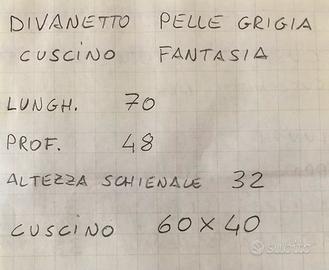 DIVANETTO PELLE GRIGIA
CUSCINO FANTASIA
LUNGH. 70
PROF. 48
ALTEZZA SCHIENALE 32
CUSCINO 60X40
subito